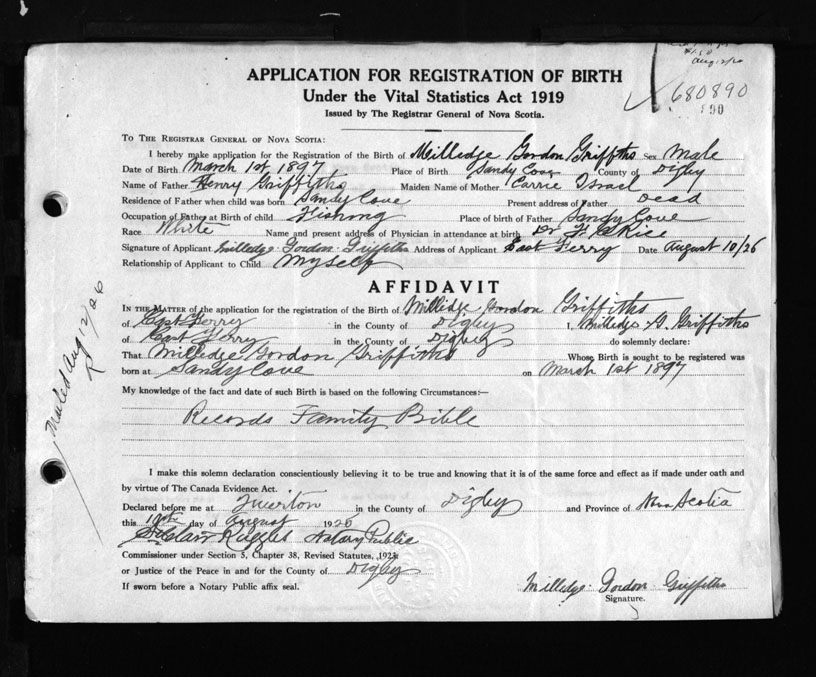 Aug 12/26
680890
890
APPLICATION FOR REGISTRATION OF BIRTH
Under the Vital Statistics Act 1919
Issued by The Registrar General of Nova Scotia.
To The Registrar General of Nova Scotia:
I hereby make application for the Registration of the Birth of Milledge Gordon Griffiths Sex Male
Date of Birth March 1st 1897 Place of Birth Sandy Cove County of Digby
Name of Father Henry Griffiths Maiden Name of Mother Carrie Israel
Residence of Father when child was born Sandy Cove Present address of Father Dead
Occupation of Father at Birth of child Fishing Place of birth of Father Sandy Cove
Race White Name and present address of Physician in attendance at birth Dr F. Rice
Signature of Applicant Milledge Gordon Griffiths Address of Applicant East Ferry Date August 10/26
Relationship of Applicant to Child Myself
AFFIDAVIT
In the Matter of the application for the registration of the Birth of Milledge Gordon Griffiths
of East Ferry in the County of Digby I, Milledge G. Griffiths
of East Ferry in the County of Digby do solemnly declare:
That Milledge Gordon Griffiths Whose Birth is sought to be registered was
born at Sandy Cove on March 1st 1897
My knowledge of the fact and date of such Birth is based on the following Circumstances:—
Records Family Bible
I make this solemn declaration conscientiously believing it to be true and knowing that it is of the same force and effect as if made under oath and
by virtue of The Canada Evidence Act.
Declared before me at Tiverton in the County of Digby and Province of Nova Scotia
this 10th day of August 1926
Ruggles Notary Public
Commissioner under Section 5, Chapter 38, Revised Statutes, 1923:
or Justice of the Peace in and for the County of Digby
If sworn before a Notary Public affix seal.
Milledge Gordon Griffiths
Signature.
Mailed Aug 12/26
R